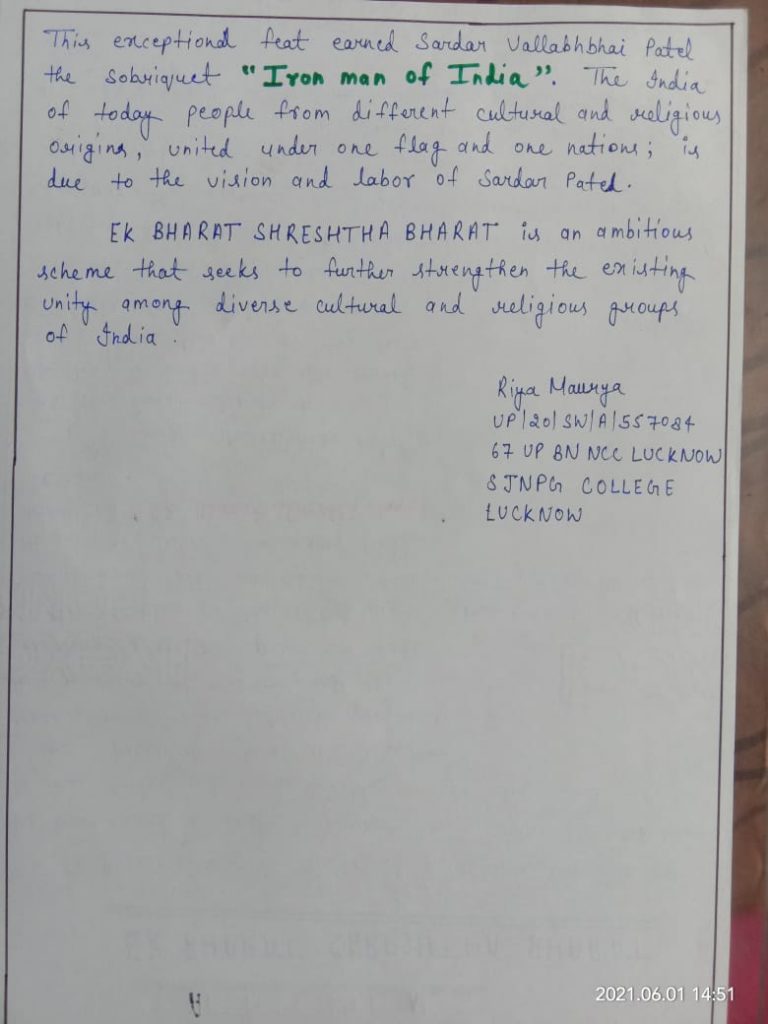 This exceptional feat earned Sardar Vallabhbhai Patel
the sobriquet "Iron man of India". The India
of today people from different cultural and religious
origins, united under one flag and one nations; is
due to the vision and labor of Sardar Patel.
EK BHARAT SHRESHTHA BHARAT is an ambitious
scheme that seeks to further strengthen the existing
unity among diverse cultural and religious groups
of India.
Riya Maurya
UP/20/SW/A/557084
67 UP BN NCC LUCKNOW
SJNPG COLLEGE
LUCKNOW
2021.06.01 14:51